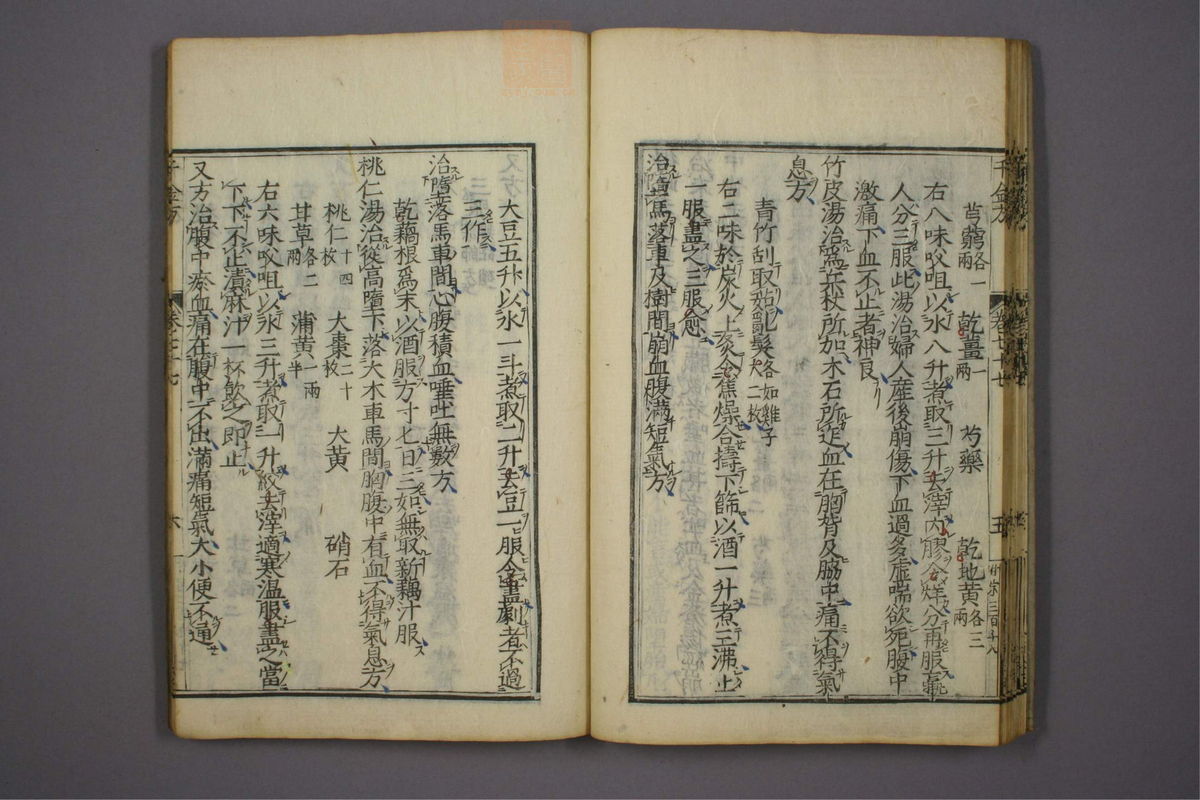 芎藭各一兩　乾薑一兩　芍藥　乾地黃各三兩
右八味㕮咀以水八升煮取三升去滓內膠令烊分再服羸
人分三服此湯治婦人産後崩傷下血過多虛喘欲死腹中
激痛下血不止者神良
竹皮湯治爲兵杖所加木石所迮血在胸背及脇中痛不得氣
息方
青竹刮取茹 亂髮各如雞子大二枚
右二味於炭火上炙令焦燥合擣下篩以酒一升煮三沸止
一服盡之三服愈
治墮馬落車及樹間崩血腹滿短氣方
大豆五升以水一斗煮取二升去豆一服令盡劇者不過
三作
治墮落馬車間心腹積血唾吐無數方
乾藕根爲末以酒服方寸匕日三如無取新藕汁服
桃仁湯治從高墮下落大木車馬間胸腹中有血不得氣息方
桃仁十四枚　大棗二十枚　大黃　硝石
甘草各二兩　蒲黃一兩半
右六味㕮咀以水三升煮取一升絞去滓適寒溫服盡之當
下下不止漬麻汁一杯飲之即止
又方治腹中瘀血痛在腹中不出滿痛短氣大小便不通
千金方　卷七十七　六